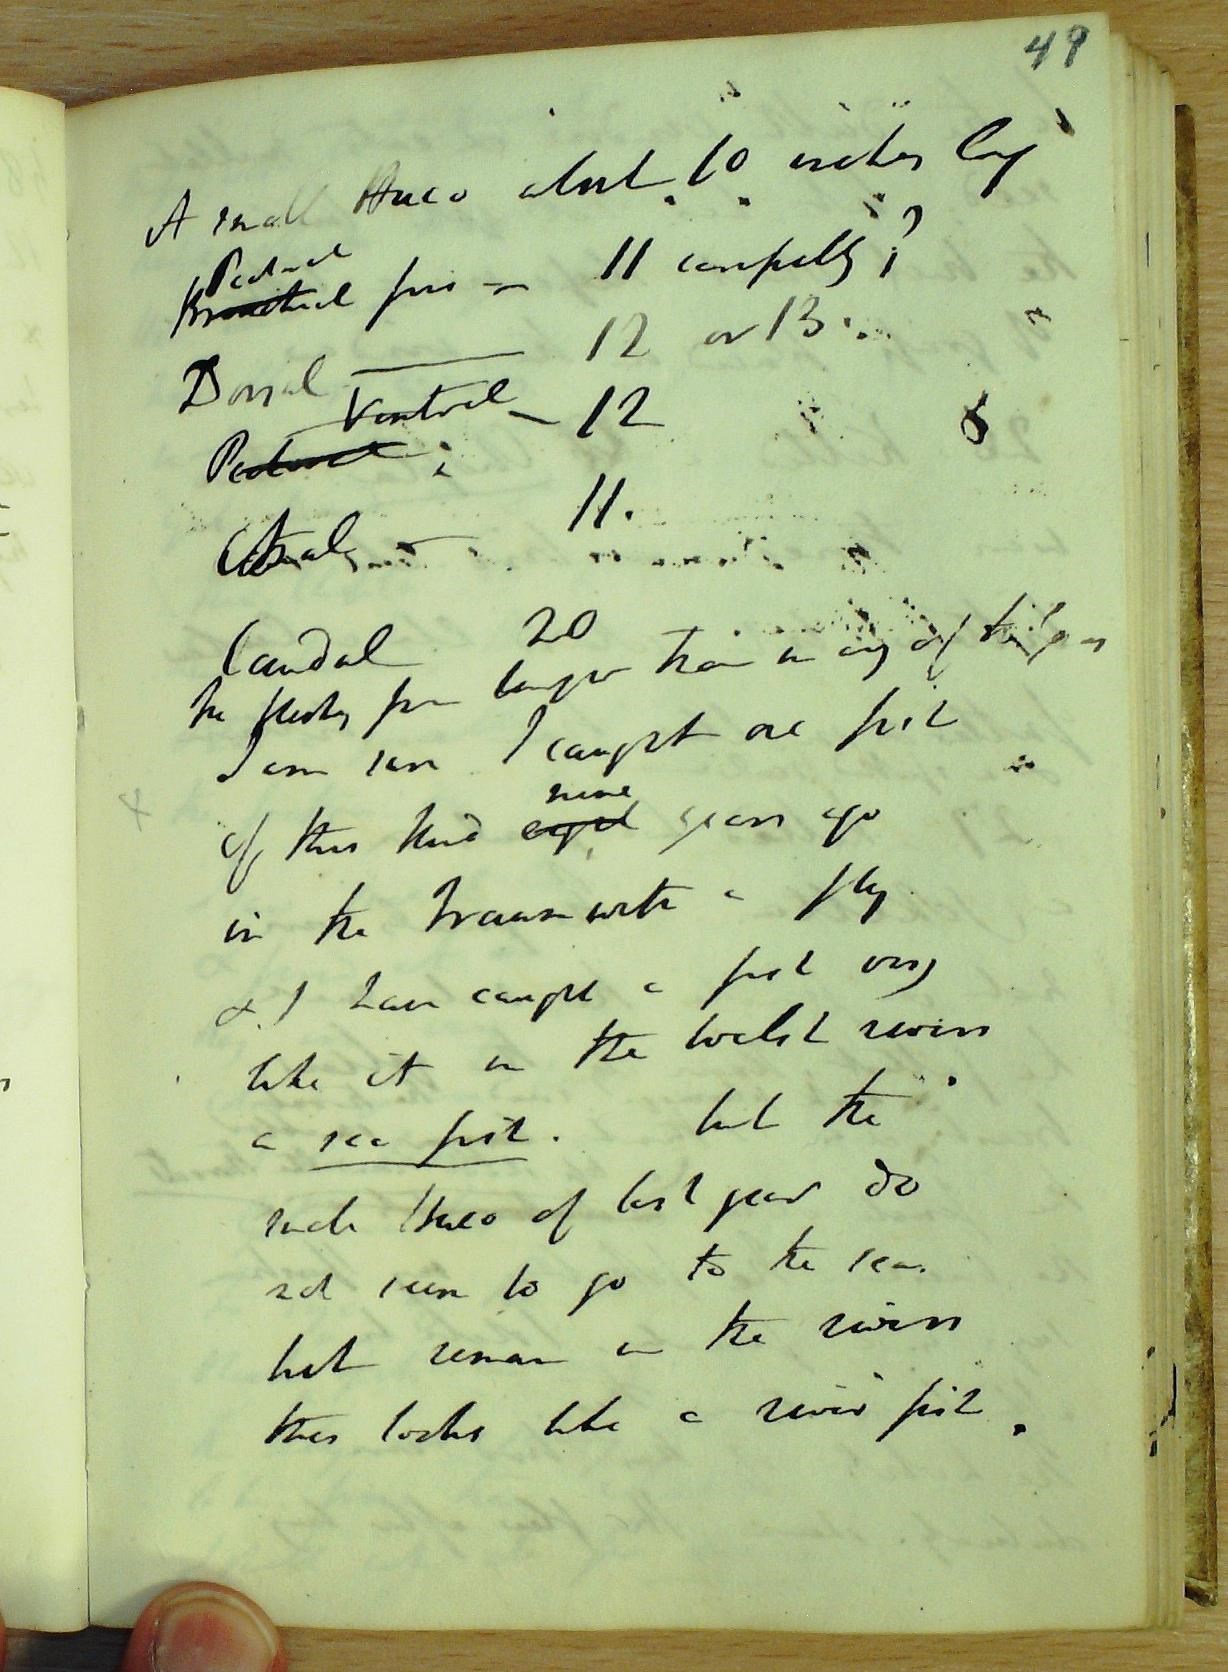 49
A small Huco about 10 inches long
Pectoral
Branchial fins — 11 carefully?
Dorsal — 12 or 13.
Ventral — 12
Pectoral
Anal — 11.
Caudal 20
the fleshy fin longer than in any of the
I am sure I caught one fish
nine
x of this kind eight years ago
in the Traun with a fly
& I have caught a fish very
like it in the welsh rivers
a sea fish. but the
Huco of last year do
not seem to go to the sea.
but remain in the rivers
this looks like a river fish.